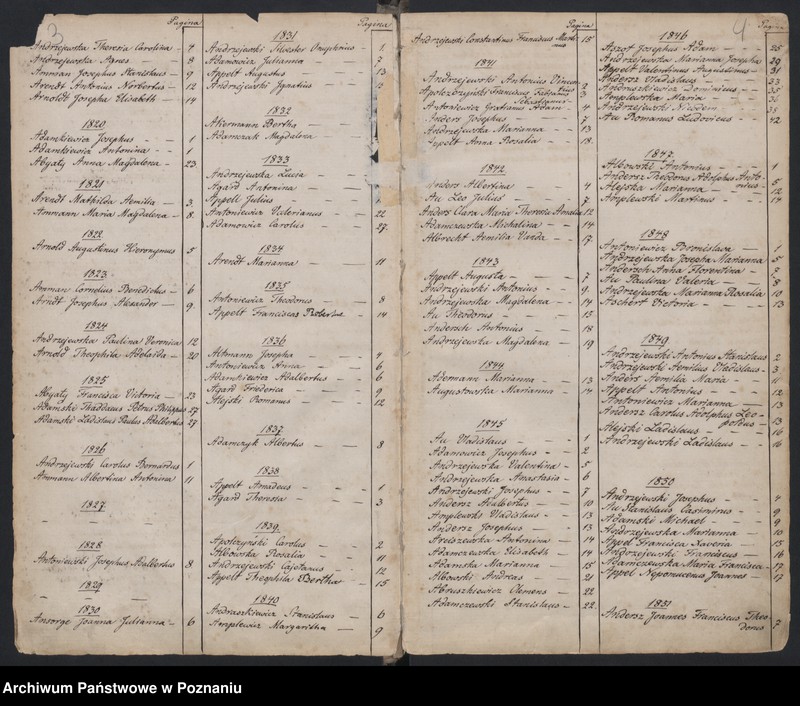 3
Pagina
Andrzejewska Theresia Carolina - 7
Andrzejewska Agnes - 8
Amman Josephus Stanislaus - 9
Arendt Antonius Norbertus - 12
Arnoldt Josepha Elisabeth - 14
1820
Adamkiewicz Josephus - 1
Adamkiewicz Antonina - - 1
Abgaty Anna Magdalena - 23
1821
Arendt Mathilda Aemilia - 3
Ammann Maria Magdalena - 8
1822
Arnold Augustinus Hieronymus 5
1823
Amman Cornelius Benedictus - 6
Arndt Josephus Alexander - 9
1824
Andrzejewska Paulina Veronica 12
Arnold Theophila Adelaida - 20
1825
Abgaty Francisca Victoria - 23
Adamski Thaddaeus Petrus Philippus 27
Adamski Ladislaus Paulus Adalbertus 27
1826
Andrzejewski Carolus Bernardus 1
Ammann Albertina Antonina 11
1827
- - -
1828
Antoniewski Josephus Adalbertus 8
1829
- - -
1830
Ansorge Joanna Julianna - 6
Pagina
1831
Andrzejewski Silvester Onuphrius - 1
Adamowicz Julianna - - 7
Appelt Augustus - - 13
Andrzejewski Ignatius - -
1832
Akermann Bertha - -
Adamczak Magdalena
1833
Andrzejewska Lucia
Agard Antonina
Appelt Julius -
Antoniewicz Valerianus - - 22
Adamowicz Carolus - - 27
1834
Arendt Marianna - - 11
1835
Antoniewicz Theodorus - - 8
Appelt Franciscus Robertus - 14
1836
Altmann Josepha - - 4
Antoniewicz Anna - - 6
Adamkiewicz Adalbertus - - 6
Agard Friederica - - 9
Alejski Romanus - - 12
1837
Adamczyk Albertus - - 8
1838
Appelt Amadeus - - 1
Agard Theresia - - 3
1839
Apolczynski Carolus - - 2
Albowska Rosalia - - 11
Andrzejewski Cajetanus - 12
Appelt Theophila Bertha - 15
1840
Andraszkiewicz Stanislaus - 6
Amplewicz Margaritha - 9
Pagina
Andrzejewski Constantinus Franciscus Martinus 15
1841
Andrzejewski Antonius Vincen- 2
Apolczdrzynski Franciscus Sebastianus 3
Antoniewicz Gratianus Adam - 4
Anders Josephus - - 7
Andrzejewska Marianna - - 13
Appelt Anna Rosalia - - 18
1842
Anders Albertina - - 4
Au Leo Julius - - 7
Anders Clara Maria Theresia Amalia 12
Adamczewska Michalina - - 14
Albrecht Aemilia Vanda - - 17
1843
Appelt Augusta - - 7
Andrzejewski Antonius - - 9
Andrzejewska Magdalena - 14
Au Theodorus - - 15
Andersch Antonius - - 18
Andrzejewska Magdalena - - 19
1844
Adermann Marianna - - 13
Augustowska Marianna - - 14
1845
Au Vladislaus - - 1
Adamowicz Josephus - - 2
Andrzejewska Valentina - 5
Andrzejewska Anastasia - 6
Andrzejewski Josephus - - 7
Anders Adalbertus - - 10
Amplewski Vladislaus - - 13
Anders Josephus - - 13
Areiszewska Antonina - - 14
Adamczewska Elisabeth - 14
Adamska Marianna - - 15
Albowski Andreas - 21
Abruszkiewicz Clemens - - 22
Adamczewski Stanislaus - - 22
4
Pagina
1846
Aszot Josephus Adam - - 25
Andrzejewska Marianna Josepha 29
Appelt Valentinus Augustinus - 31
Anders Vladislaus - - 33
Andruszkiewicz Dominicus - 35
Amplewska Maria - - 36
Andrzejewski Nicodem - - 38
Au Romanus Ludovicus - - 42
1847
Albowski Antonius - - 1
Anders Theodorus Adolphus Antonius - 5
Alejska Marianna - - 12
Amplewski Martinus - - 14
1848
Antoniewicz Bronislava - - 1
Andrzejewska Josepha Marianna 5
Andersch Anna Florentina - 7
Au Paulina Valeria - - 8
Andrzejewska Marianna Rosalia 10
Aschert Victoria - - 13
1849
Andrzejewski Antonius Stanislaus 2
Andrzejewski Aemilius Vladislaus - 3
Anders Aemilia Maria - - 11
Appelt Antonius - - 12
Antoniewicz Marianna - - 13
Andersz Carolus Adolphus Leopoldus - 13
Alejski Ladislaus - - 16
Andrzejewski Ladislaus - - 16
1850
Andrzejewski Josephus - - 4
Au Stanislaus Casimirus - 9
Adamski Michael - - 9
Andrzejewska Marianna - 10
Appel Francisca Xaveria - 15
Andrzejewski Franciscus - 16
Adamczewska Maria Francisca - 17
Appel Nepomucenus Joannes - 17
1851
Andersz Joannes Franciscus Theodorus 7
Archiwum Państwowe w Poznaniu